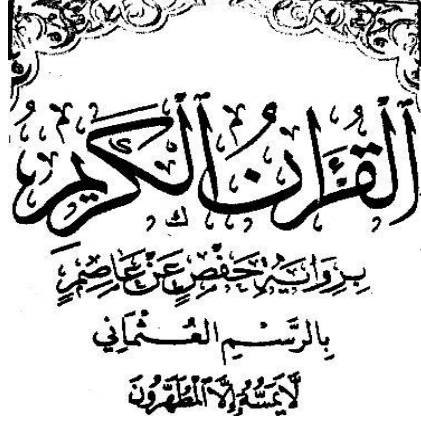 ٱلْقُرْءَانُ ٱلْكَرِيمُ
بِرِوَايَةِ حَفْصٍ عَنْ عَاصِمٍ
بِالرَّسْمِ العُثْمَانِي
لَّا يَمَسُّهُ إِلَّا ٱلْمُطَهَّرُونَ